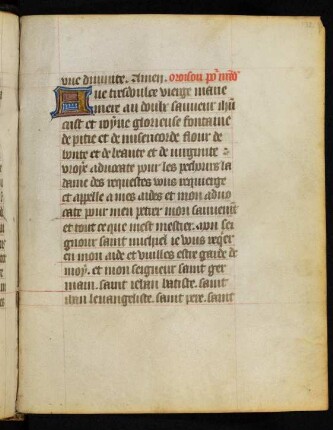 vne diuinite. Amen. oroison
Aue tresdoulce vierge marie
mere au doulz sauueur ihu
crist et royne glorieuse fontaine
de pitie et de misericorde flour de
bonte et de beaute et de uirginite
vroye aduocate pour les pecheurs la
dame des requestes vous requierge
et appelle a mes aides et mon aduo
cate pour mon pere mon sauueur
et tout ce que mest mestier. mon sei
gnour saint michiel ie vous reqer
en mon aide et vuilles estre garde de
moy. et mon seigneur saint ger
main. saint iehan batiste. saint
iehan leuangeliste. saint pere. saint